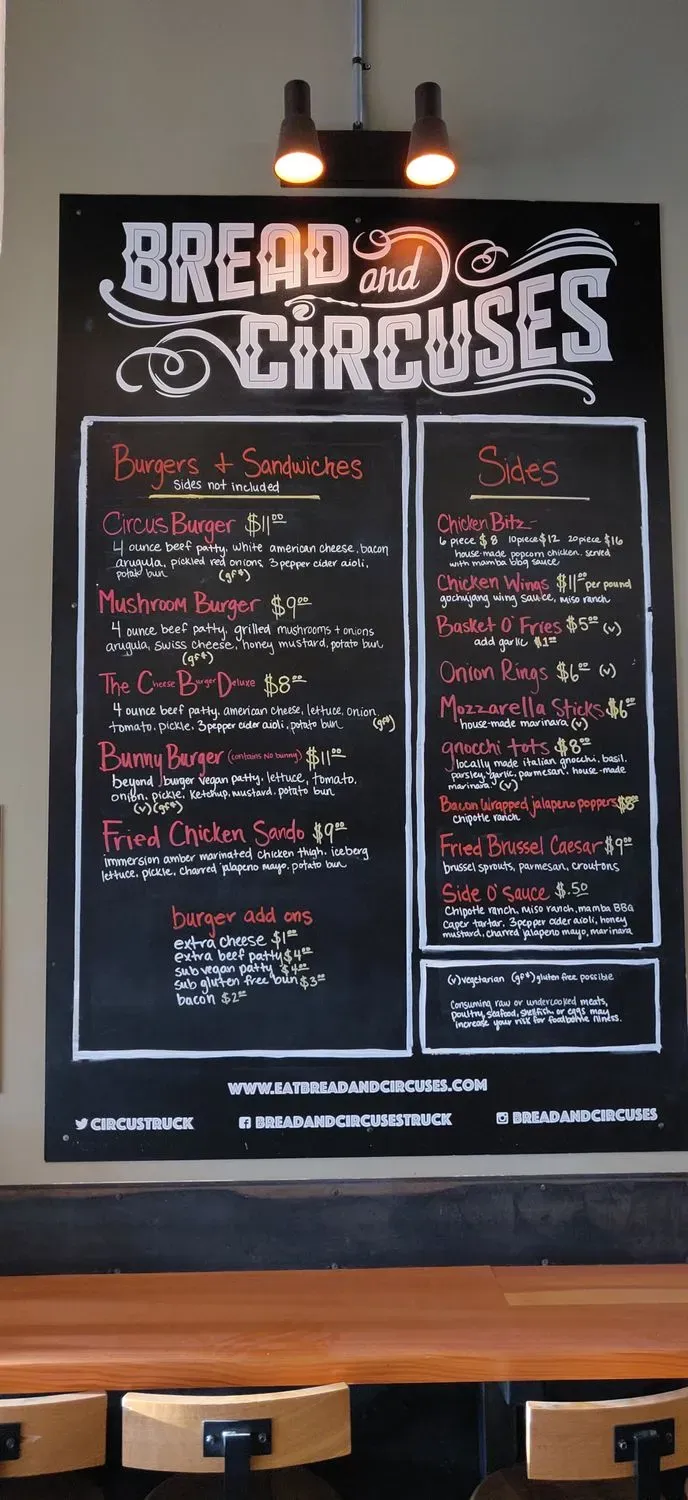 BREAD and
CIRCUSES
Burgers + Sandwiches
Sides not included
Circus Burger $11⁰⁰
4 ounce beef patty, white american cheese, bacon
arugula, pickled red onions, 3 pepper cider aioli,
potato bun (gf*)
Mushroom Burger $9⁰⁰
4 ounce beef patty, grilled mushrooms + onions
arugula, swiss cheese, honey mustard, potato bun
(gf*)
The Cheese Burger Deluxe $8⁰⁰
4 ounce beef patty, american cheese, lettuce, onion
tomato, pickle, 3 pepper cider aioli, potato bun (gf*)
Bunny Burger (contains NO bunny) $11⁰⁰
beyond burger vegan patty, lettuce, tomato,
onion, pickle, ketchup, mustard, potato bun
(v) (gf*)
Fried Chicken Sando $9⁰⁰
immersion amber marinated chicken thigh, iceberg
lettuce, pickle, charred jalapeno mayo, potato bun
burger add ons
extra cheese $1⁰⁰
extra beef patty $4⁰⁰
sub vegan patty $4⁰⁰
sub gluten free bun $3⁰⁰
bacon $2⁰⁰
Sides
Chicken Bitz-
6 piece $8 10 piece $12 20 piece $16
house-made popcorn chicken, served
with mamba bbq sauce
Chicken Wings $11⁰⁰ per pound
gochujang wing sauce, miso ranch
Basket O' Fries $5⁰⁰ (v)
add garlic $1⁰⁰
Onion Rings $6⁰⁰ (v)
Mozzarella Sticks $6⁰⁰
house-made marinara (v)
gnocchi tots $8⁰⁰
locally made italian gnocchi, basil,
parsley, garlic, parmesan, house-made
marinara (v)
Bacon Wrapped jalapeno poppers $8⁰⁰
chipotle ranch
Fried Brussel Caesar $9⁰⁰
brussel sprouts, parmesan, croutons
Side O' Sauce $.50
Chipotle ranch, miso ranch, mamba BBQ
caper tartar, 3 pepper cider aioli, honey
mustard, charred jalapeno mayo, marinara
(v) vegetarian (gf*) gluten free possible
Consuming raw or undercooked meats,
poultry, seafood, shellfish, or eggs may
increase your risk for foodborne illness.
WWW.EATBREADANDCIRCUSES.COM
CIRCUSTRUCK
BREADANDCIRCUSESTRUCK
BREADANDCIRCUSES